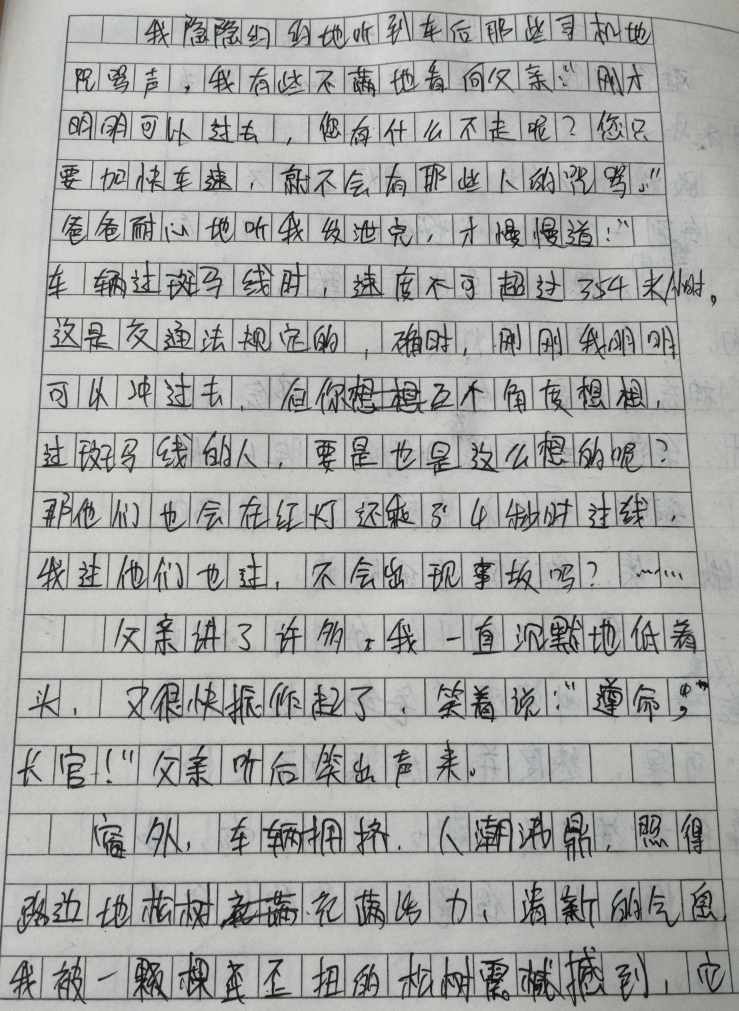 我隐隐约约地听到车后那些司机地
咒骂声，我有些不满地看向父亲："刚才
明明可以过去，您有什么不走呢？您只
要加快车速，就不会有那些人的咒骂。"
爸爸耐心地听我发泄完，才慢慢道："
车辆过斑马线时，速度不可超过354米/小时。
这是交通法规定的，确时，刚刚我明明
可以冲过去，但你想想互个角度想想，
过斑马线的人，要是也是这么想的呢？
那他们也会在红灯还剩了4秒时过线，
我过他们也过，不会出现事故吗？……
父亲讲了许多，我一直沉默地低着
头，又很快振作起了，笑着说："遵命，
长官！"父亲听后笑出声来。
窗外，车辆拥挤，人潮沸鼎，照得
路边地松树充满活力，清新的气息
我被一颗棵歪歪扭的松树震撼到，它